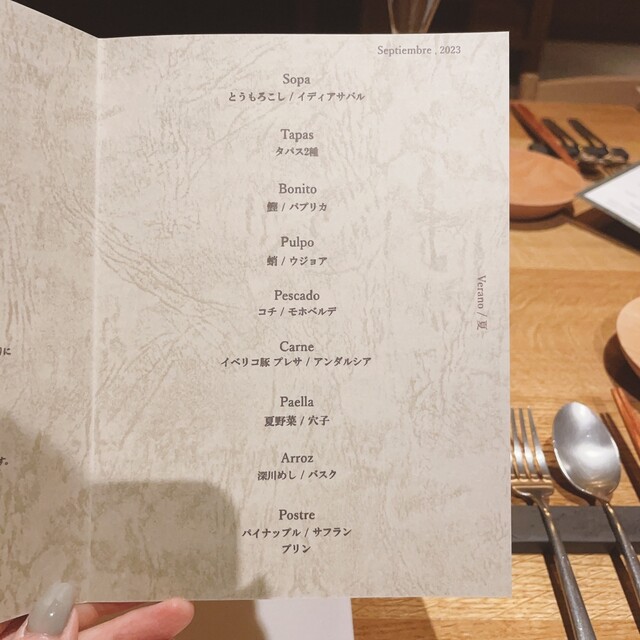 Septiembre , 2023
Sopa
とうもろこし / イディアサバル
Tapas
タパス2種
Bonito
鰹 / パプリカ
Pulpo
蛸 / ウジョア
Pescado
コチ / モホベルデ
Carne
イベリコ豚 プレサ / アンダルシア
Paella
夏野菜 / 穴子
Arroz
深川めし / バスク
Postre
パイナップル / サフラン
プリン
Verano / 夏
に
す。